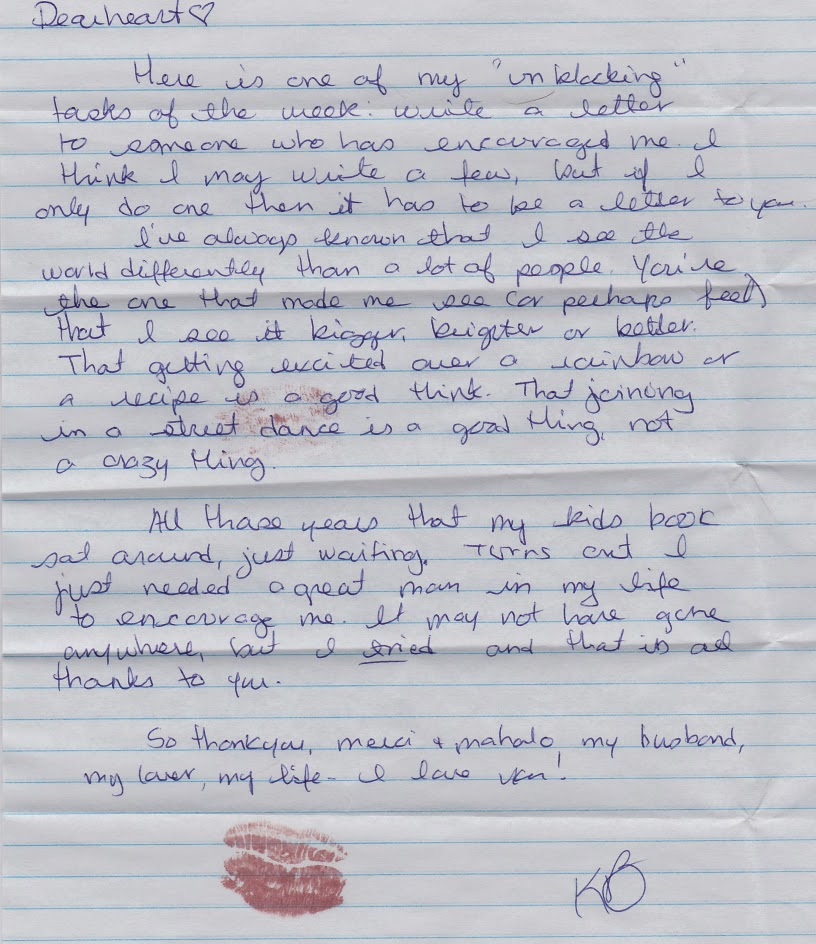 Dearheart♡
Here is one of my "unblocking"
tasks of the week: write a letter
to someone who has encouraged me. I
think I may write a few, but if I
only do one then it has to be a letter to you.
I've always known that I see the
world differently than a lot of people. You're
the one that made me see (or perhaps feel)
that I see it bigger, brigter or better.
That getting excited over a rainbow or
a recipe is a good think. That joining
in a street dance is a good thing, not
a crazy thing.
All those years that my kids book
sat around, just waiting. Turns out I
just needed a great man in my life
to encourage me. It may not have gone
anywhere, but I tried and that is all
thanks to you.
So thankyou, merci + mahalo, my husband,
my lover, my life - I love you!
KB